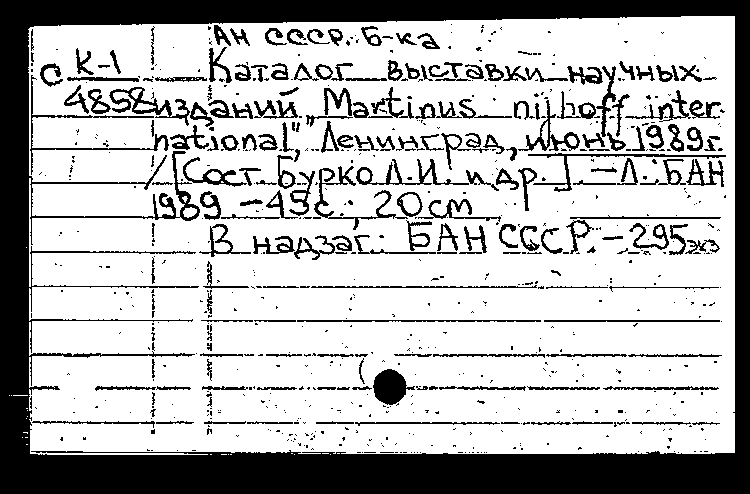 АН СССР. Б-ка
С К-1 Каталог выставки научных
4858 изданий „Martinus nijhoff inter-
national", Ленинград, июнь 1989г.
/ [Сост. Бурко Л.И. и др.]. — Л.: БАН
1989. - 45 с.; 20 см
В надзаг.: БАН СССР. - 295 экз